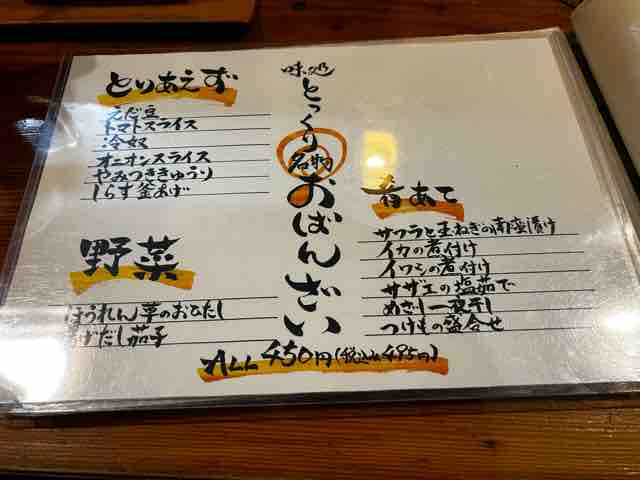 味処
とっくり
名物
おばんざい
とりあえず
えだ豆
トマトスライス
冷奴
オニオンスライス
やみつききゅうり
しらす釜あげ
野菜
ほうれん草のおひたし
あげだし茄子
肴あて
サワラと玉ねぎの南蛮漬け
イカの煮付け
イワシの煮付け
サザエの塩茹で
めざし一夜干し
つけもの盛合せ
ALL 450円(税込み495円)